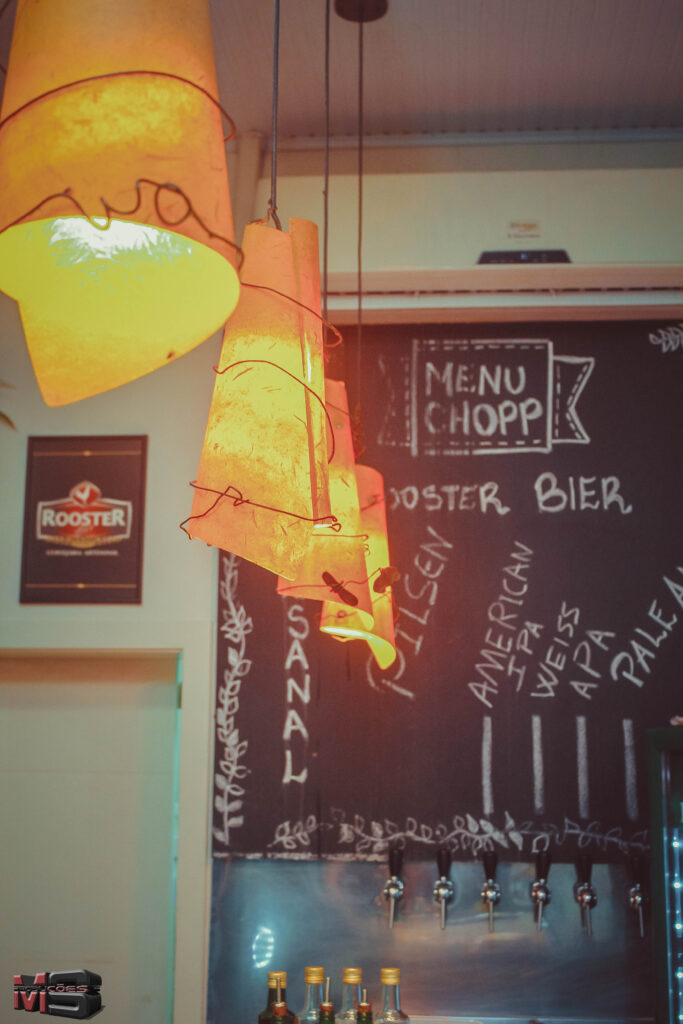 MENU
CHOPP
OOSTER BIER
PILSEN
AMERICAN
IPA
WEISS
APA
PALE A
SANAL
ROOSTER
CERVEJARIA ARTESANAL
M3
PRODUÇÕES